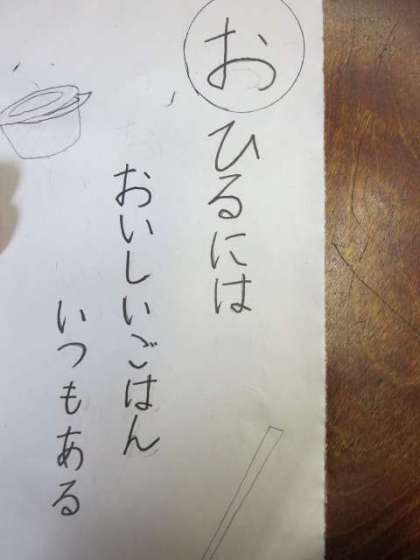 おひるには
おいしいごはん
いつもある